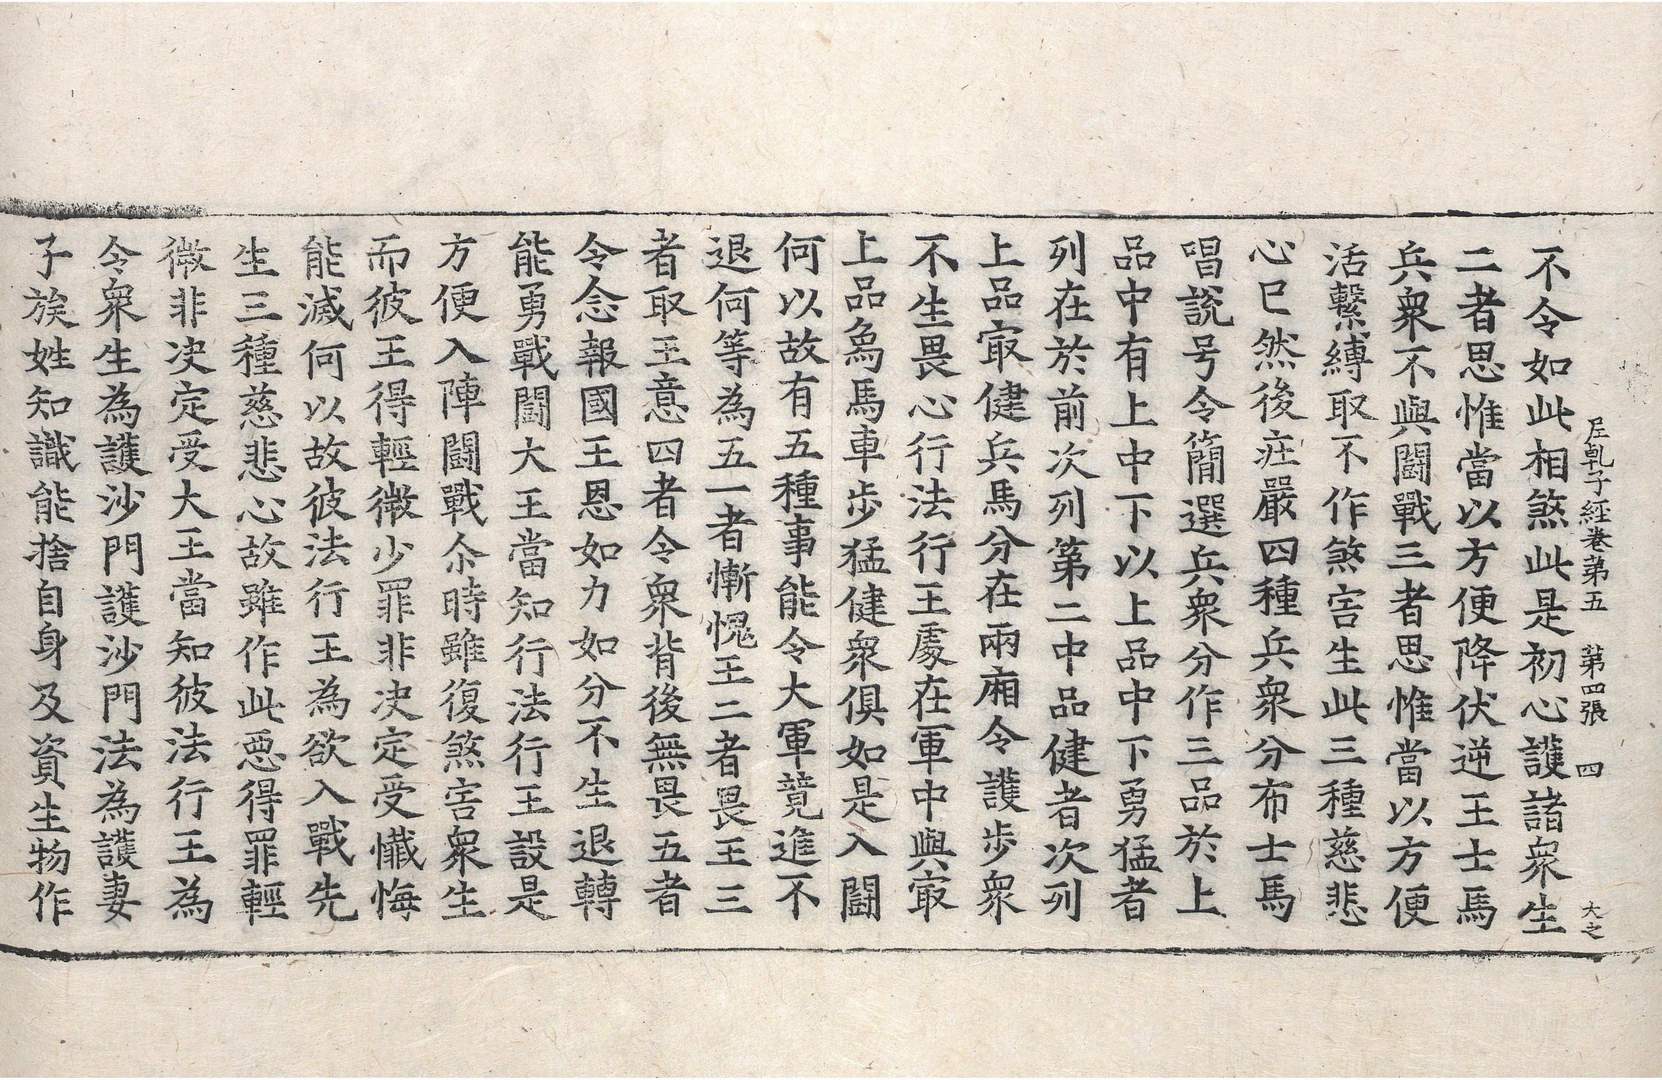 尼乹子經卷第五　第四張　四　大之
不令如此相煞此是初心護諸衆生
二者思惟當以方便降伏逆王士馬
兵衆不與鬪戰三者思惟當以方便
活繫縛取不作煞害生此三種慈悲
心已然後庄嚴四種兵衆分布士馬
唱說号令簡選兵衆分作三品於上
品中有上中下以上品中下勇猛者
列在於前次列第二中品健者次列
上品㝡健兵馬分在兩廂令護步衆
不生畏心行法行王處在軍中與㝡
上品象馬車步猛健衆俱如是入鬪
何以故有五種事能令大軍竟進不
退何等為五一者慚愧王二者畏王三
者取王意四者令衆背後無畏五者
令念報國王恩如力如分不生退轉
能勇戰鬪大王當知行法行王設是
方便入陣鬪戰尒時雖復煞害衆生
而彼王得輕微少罪非決定受懺悔
能滅何以故彼法行王為欲入戰先
生三種慈悲心故雖作此惡得罪輕
微非決定受大王當知彼法行王為
令衆生為護沙門護沙門法為護妻
子族姓知識能捨自身及資生物作